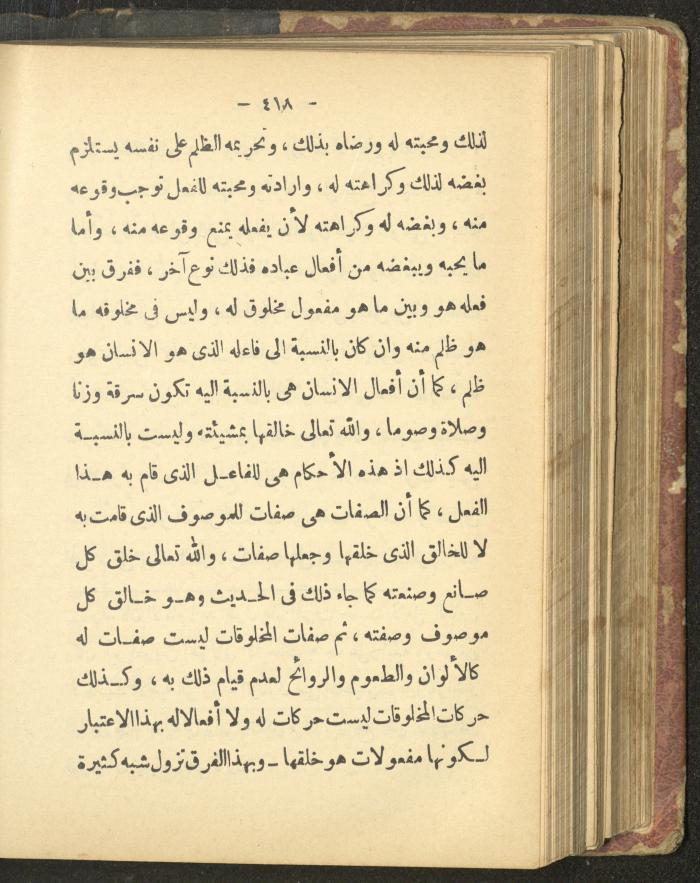 - ٤١٨ -
لذلك ومحبته له ورضاه بذلك ، وتحريمه الظلم على نفسه يستلزم
بغضه لذلك وكراهته له ، وارادته ومحبته للفعل توجب وقوعه
منه ، وبغضه له وكراهته لأن يفعله يمنع وقوعه منه ، وأما
ما يحبه ويبغضه من أفعال عباده فذلك نوع آخر ، ففرق بين
فعله هو وبين ما هو مفعول مخلوق له ، وليس فى مخلوقه ما
هو ظلم منه وان كان بالنسبة الى فاعله الذى هو الانسان هو
ظلم ، كما أن أفعال الانسان هى بالنسبة اليه تكون سرقة وزنا
وصلاة وصوما ، والله تعالى خالقها بمشيئته وليست بالنسبة
اليه كذلك اذ هذه الأحكام هى للفاعل الذى قام به هذا
الفعل ، كما أن الصفات هى صفات للموصوف الذى قامت به
لا للخالق الذى خلقها وجعلها صفات ، والله تعالى خلق كل
صانع وصنعته كما جاء ذلك فى الحديث وهو خالق كل
موصوف وصفته ، ثم صفات المخلوقات ليست صفات له
كالألوان والطعوم والروائح لعدم قيام ذلك به ، وكذلك
حركات المخلوقات ليست حركات له ولا أفعالا له بهذا الاعتبار
لكونها مفعولات هو خلقها - وبهذا الفرق تزول شبه كثيرة